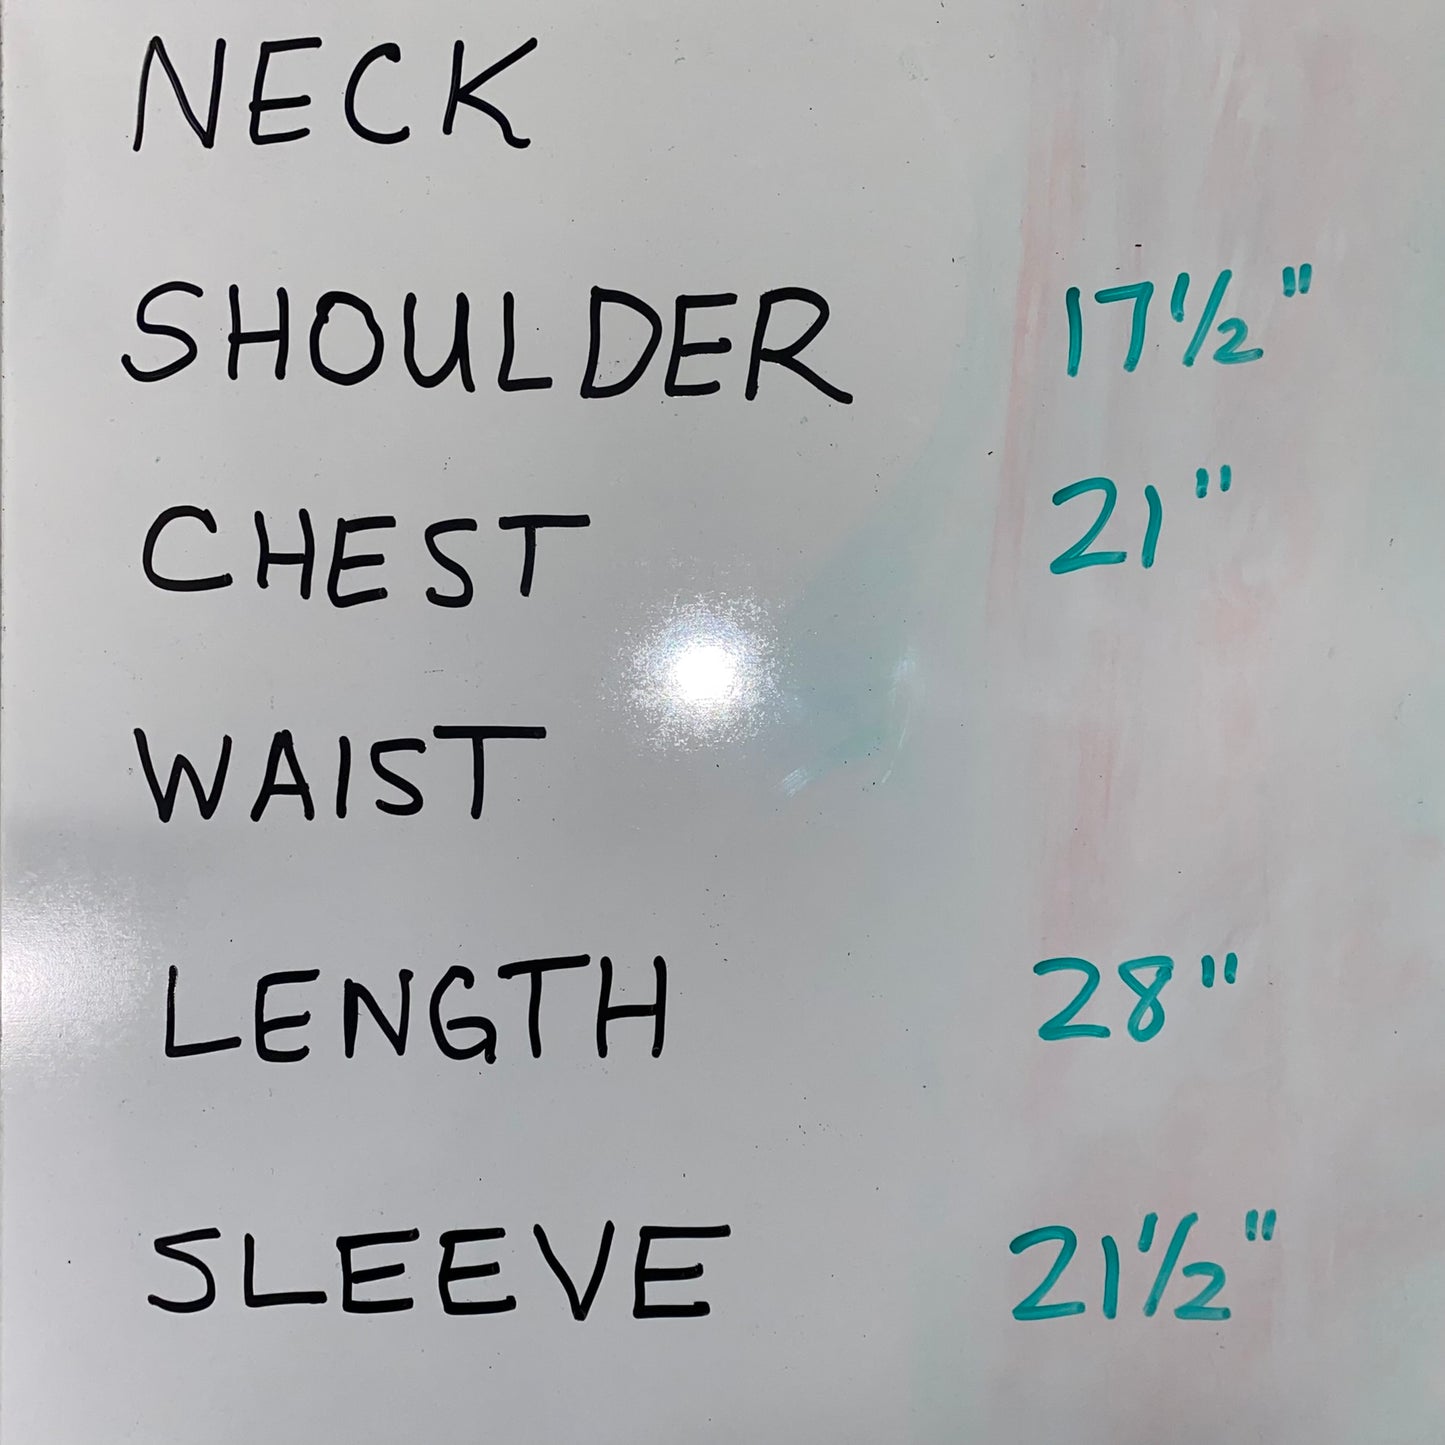 NECK
SHOULDER 17 1/2"
CHEST 21"
WAIST
LENGTH 28"
SLEEVE 21 1/2"